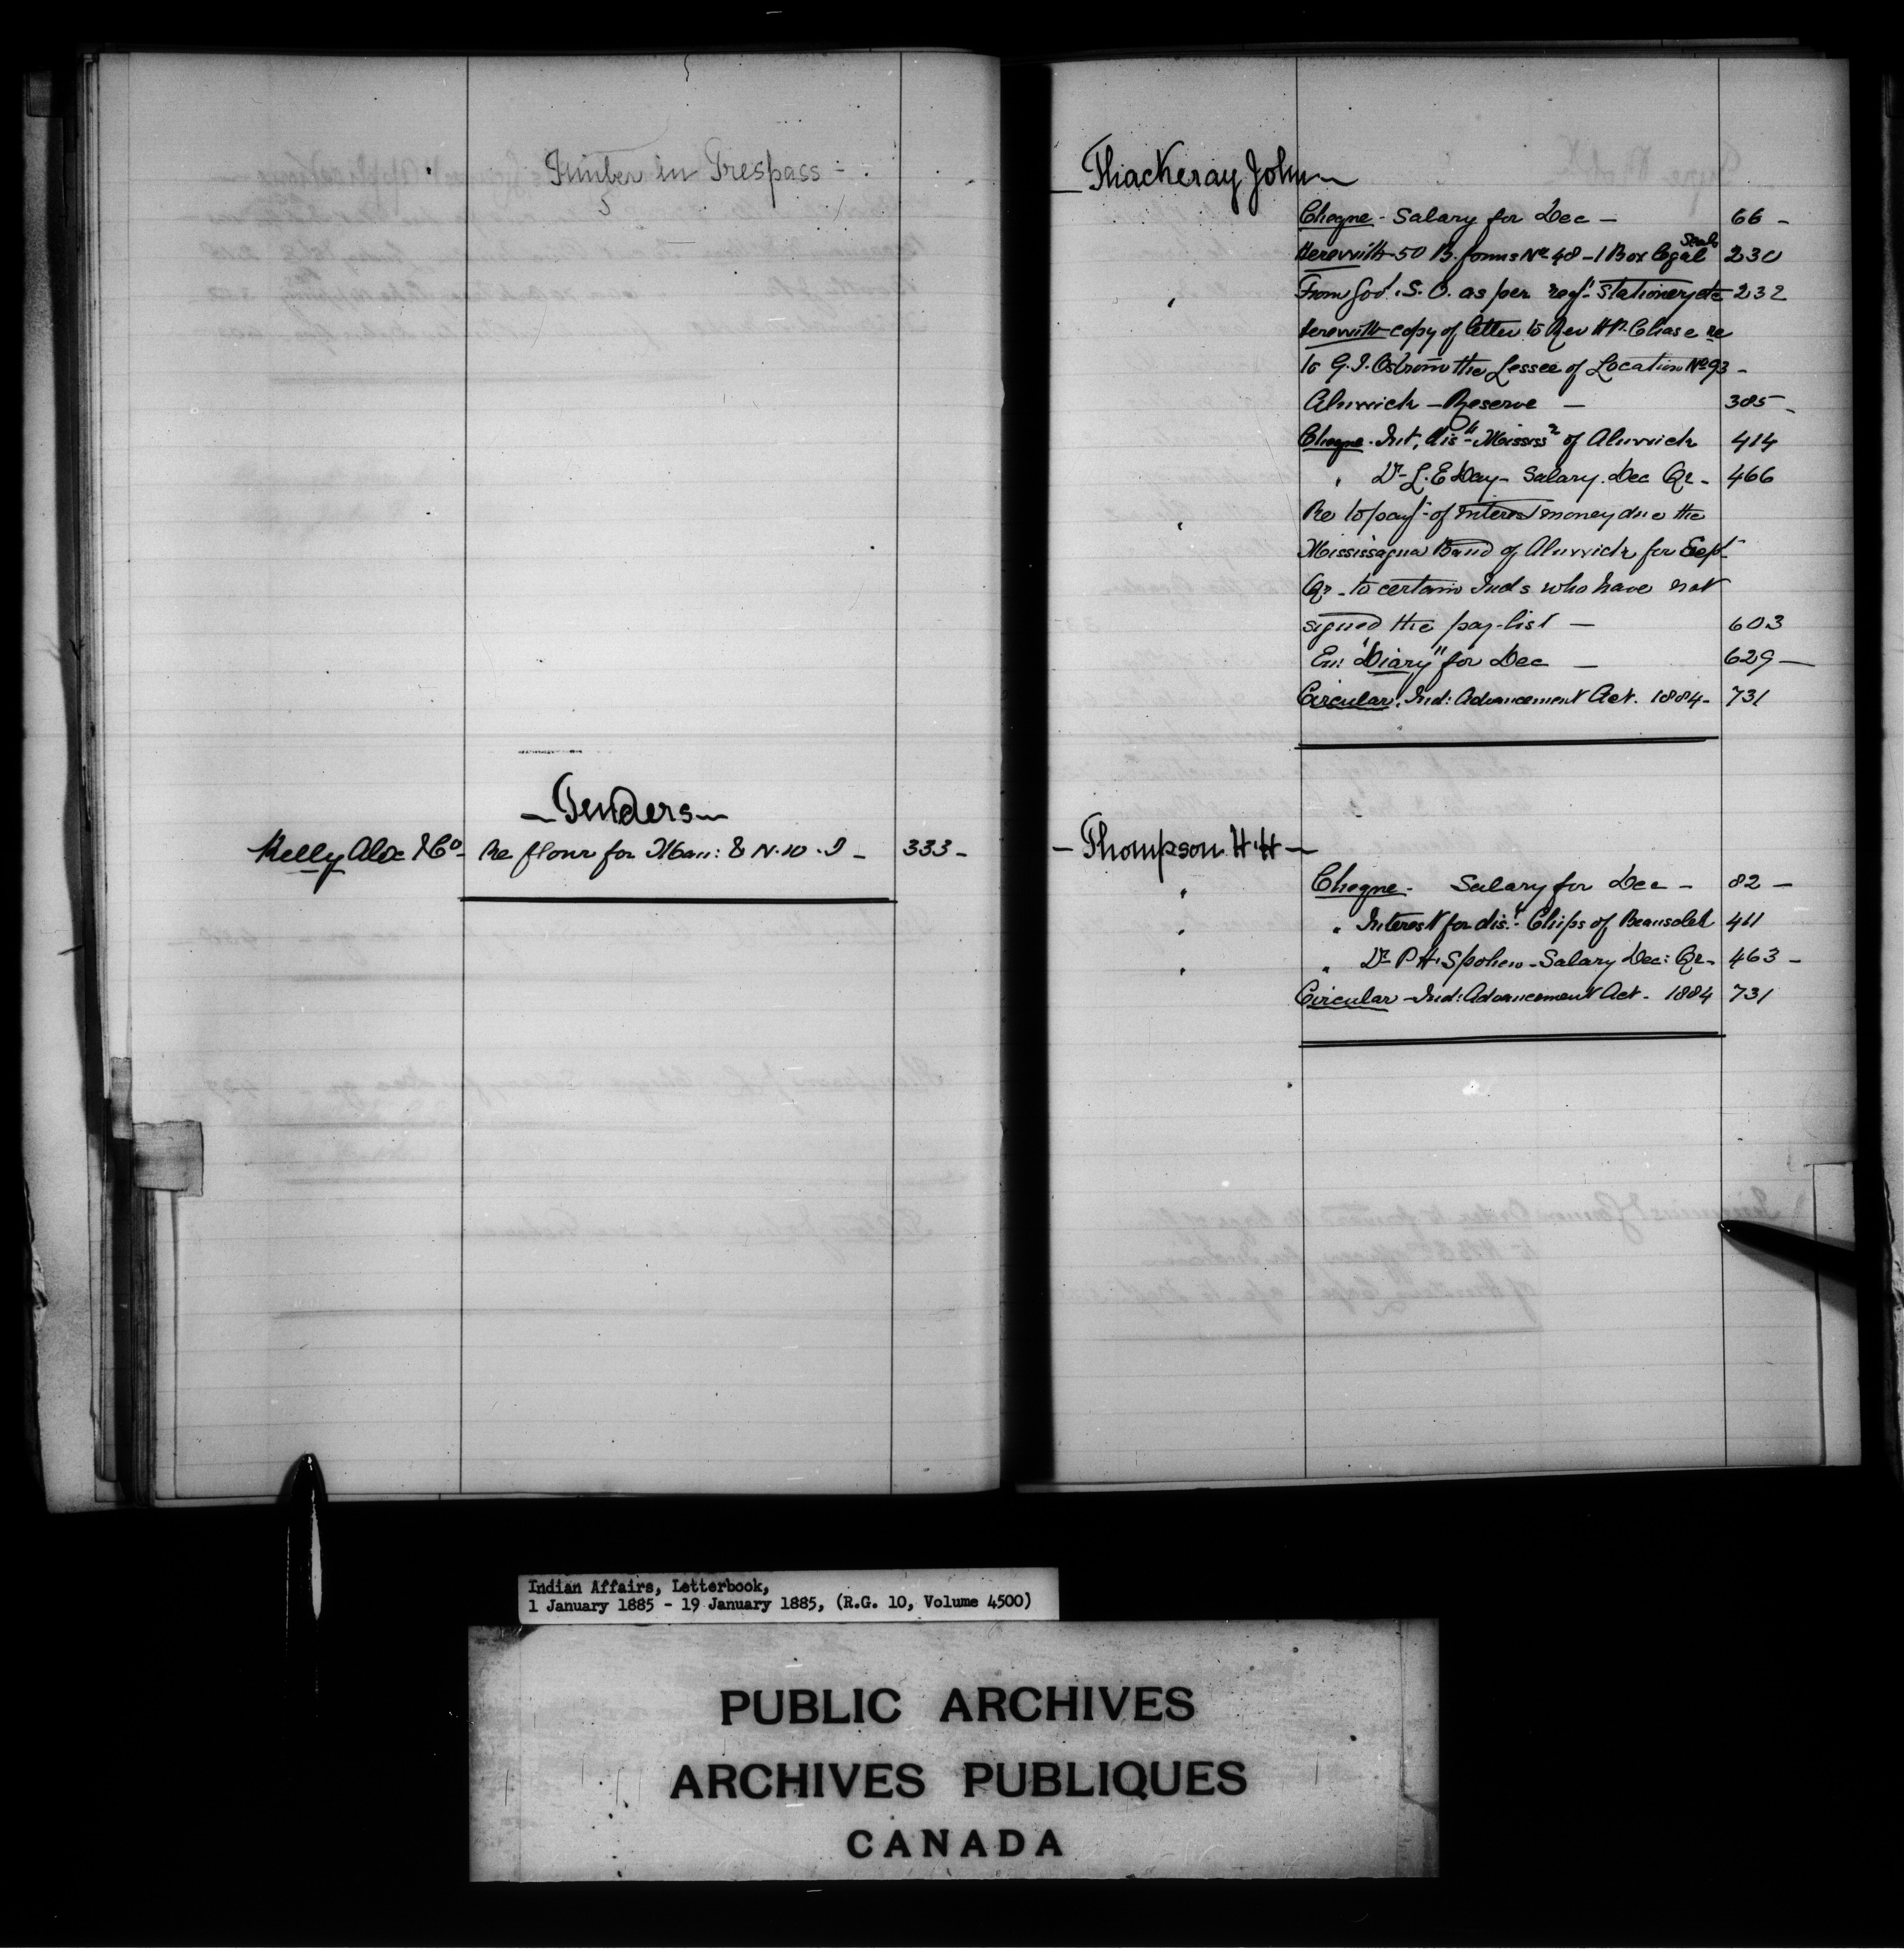 Timber in Trespass -
- Tenders -
Kelly Alex & Co - Re flour for Man: & N.W.T - 333 -
Thackeray John -
Cheque - Salary for Dec - 66 -
Herewith 50 B. forms No 48 - 1 Box legal Seals 230
" From Govt. S.O. as per reqn Stationery etc 232
Herewith copy of letter to Rev H.P. Chase re
to G.I. Ostrom the Lessee of Location No 93 -
Alnwick - Reserve - 385 -
Cheque - Int, disn Mississs of Alnwick 414
" Dr L. E Day - Salary. Dec Qr - 466
" Re to payt of Interest money due the
Mississagua Band of Alnwick for Sept
Qr - to certain Inds who have not
signed the pay-list - 603
En: "Diary" for Dec - 629 -
Circular. Ind: Advancement Act. 1884 - 731
- Thompson H.H -
" Cheque - Salary for Dec - 82 -
" " Interest for dist. Chips of Beausoleil 411
" " Dr P H. Spohn - Salary Dec: Qr - 463 -
Circular - Ind: Advancement Act - 1884 731
Indian Affairs, Letterbook,
1 January 1885 - 19 January 1885, (R.G. 10, Volume 4500)
PUBLIC ARCHIVES
ARCHIVES PUBLIQUES
CANADA